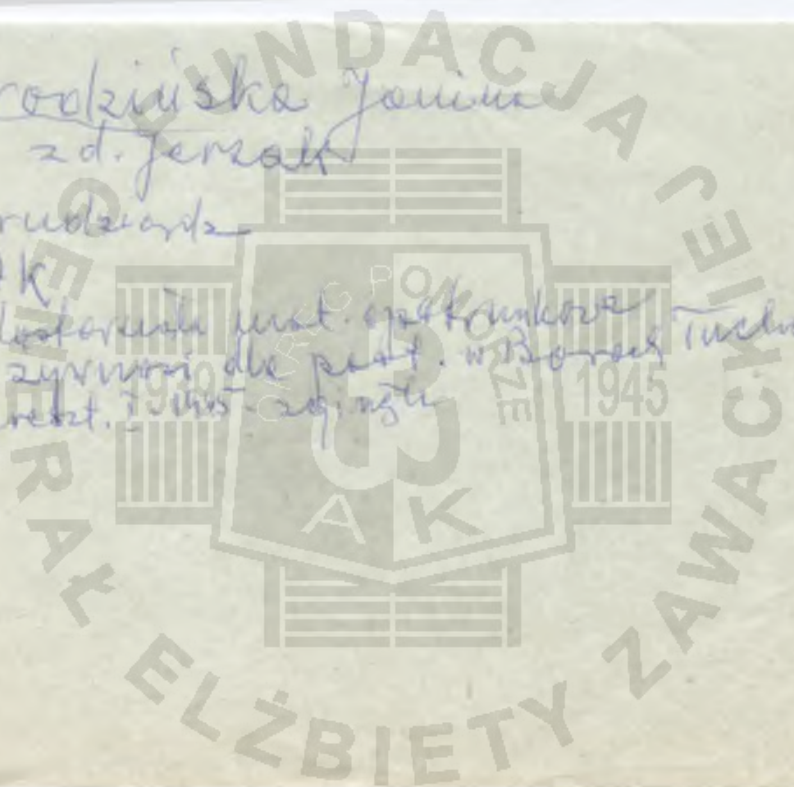 rodzińska Janina
zd. Jerzak
rudziądz
K
dostarczała mat. opatrunkowe
żywność dla part. w Borach Tuchol
reszt. I 1945 - zginęła
FUNDACJA JEJ
GENERAŁ ELŻBIETY ZAWACKIEJ
OKRĘG POMORZE
1939 1945
AK